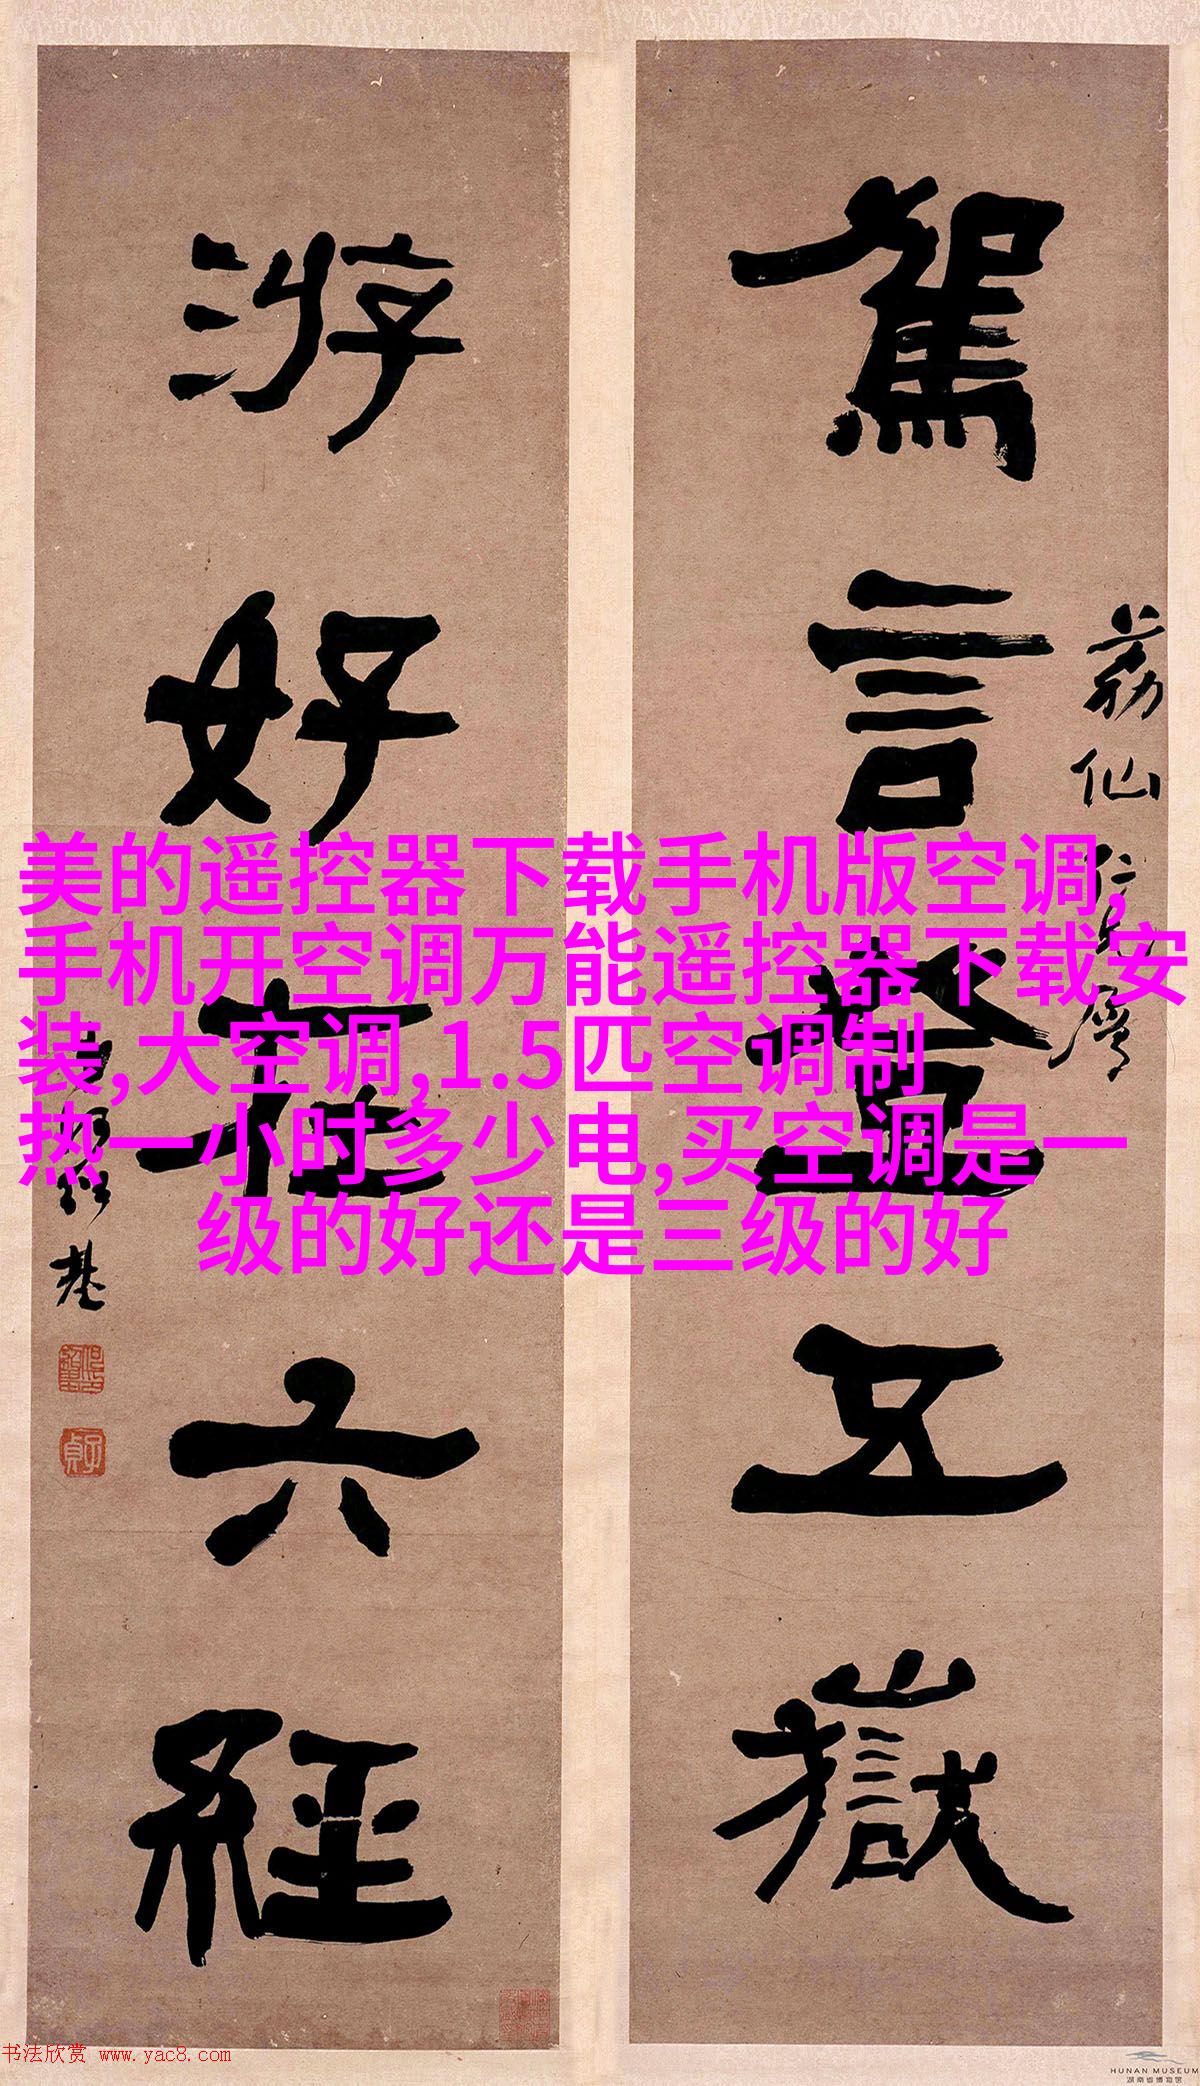 駕言登五嶽
荔仙仁兄屬
游好在六經
何紹基
子貞
美的遥控器下载手机版空调,
手机开空调万能遥控器下载安
装,大空调,1.5匹空调制
热一小时多少电,买空调是一
级的好还是三级的好
书法欣赏 www.yac8.com
HUNAN MUSEUM
湖南省博物馆